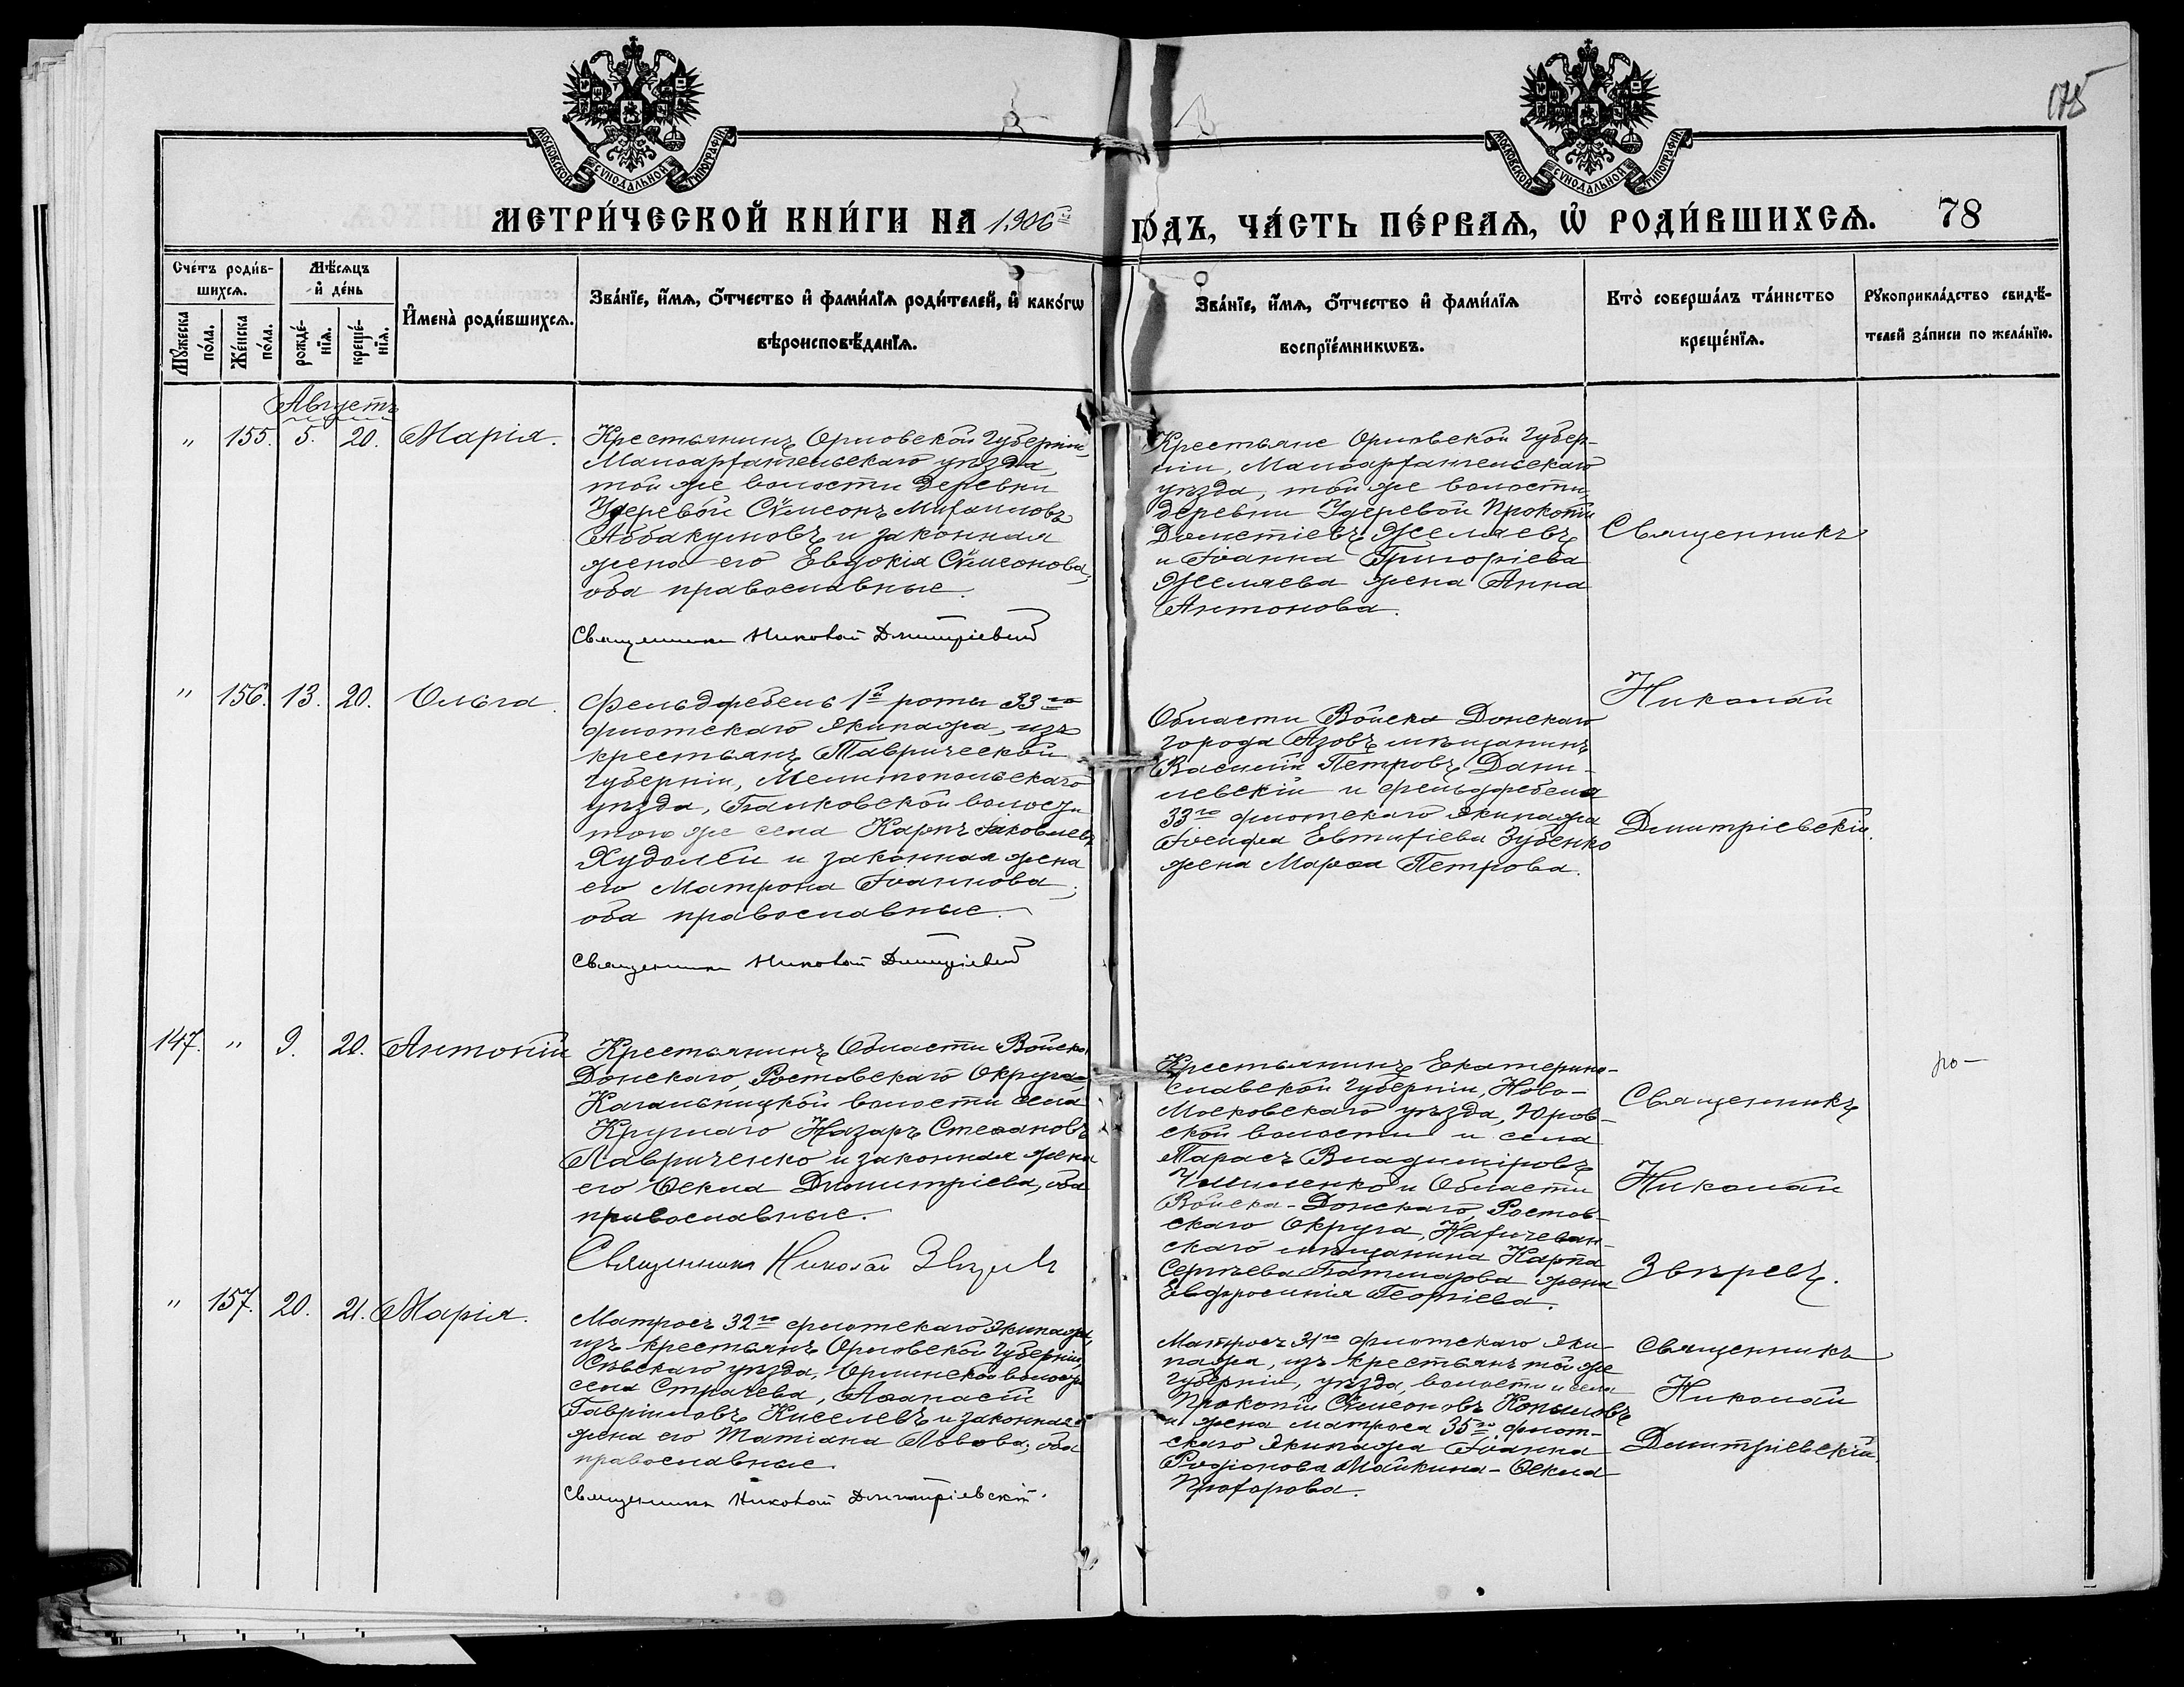 МОСКОВСКОЙ СѴНОДАЛЬНОЙ ТИПОГРАФІИ
МОСКОВСКОЙ СѴНОДАЛЬНОЙ ТИПОГРАФІИ
175
МЕТРИ́ЧЕСКОЙ КНИ́ГИ НА 1906й ГО́ДЪ, ЧА́СТЬ ПЕ́РВАѦ, Ѡ҆ РОДИ́ВШИХСѦ. 78
Сче́тъ роди́в-
шихсѧ.
Мѣ́сѧцъ
и҆ де́нь
Мꙋ́жеска
по́ла.
Же́нска
по́ла.
рожде́-
нїѧ.
креще́-
нїѧ.
И҆мена̀ роди́вшихсѧ.
Зва́нїе, и҆́мѧ, ѻ҆́тчество и҆ фами́лїѧ роди́телей, и҆ како́гѡ
вѣроисповѣ́данїѧ.
Зва́нїе, и҆́мѧ, ѻ҆́тчество и҆ фами́лїѧ
воспрїе́мникѡвъ.
Кто̀ соверша́лъ та́инство
креще́нїѧ.
Рꙋкоприкла́дство свидѣ́-
телей за́писи по жела́нїю.
Августъ
" 155. 5. 20. Марія.
Крестьянинъ Орловской Губерніи,
Малоархангельскаго уѣзда,
той же волости деревни
Удеревой Сѵмеонъ Михаиловъ
Аббакумовъ и законная
жена его Евдокія Сѵмеонова,
оба православные.
Священникъ Николай Дмитріевскій
Крестьяне Орловской Губер-
ніи, Малоархангельскаго
уѣзда, той же волости,
деревни Удеревой Прокопій
Дометіевъ Желяевъ
и Іоанна Григоріева
Желяева жена Анна
Антонова.
Священникъ
Николай
Дмитріевскій.
" 156. 13. 20. Ольга.
Фельдфебель 1й роты 33го
флотскаго экипажа, изъ
крестьянъ Таврической
губерніи, Мелитопольскаго
уѣзда, Балковской волости
того же села Карпъ Іаковлевъ
Худолѣй и законная жена
его Матрона Іоаннова,
оба православные.
Священникъ Николай Дмитріевскій
Области Войска Донскаго
города Азовъ мѣщанинъ
Василій Петровъ Дани-
левскій и фельдфебеля
33го флотскаго экипажа
Іосифа Евтихіева Зубенко
жена Марѳа Петрова.
147. " 9. 20. Антоній
Крестьянинъ Области Войска
Донскаго, Ростовскаго Округа,
Кагальницкой волости села
Круглаго Назаръ Стефановъ
Лавриченко и законная жена
его Ѳекла Димитріева, оба
православные.
Священникъ Николай Звѣревъ
Крестьянинъ Екатерино-
славской губерніи, Ново-
Московскаго уѣзда, Юров-
ской волости и села
Тарасъ Владиміровъ
и Области
Войска-Донскаго, Ростов-
скаго Округа, Нахичеван-
скаго мѣщанина Карпа
Сергѣева жена
Евфросинія Георгіева.
Священникъ
Николай
Звѣревъ.
" 157. 20. 21. Марія.
Матросъ 32го флотскаго экипажа,
изъ крестьянъ Орловской Губерніи,
Сѣвскаго уѣзда, волости
села Страчева, Аѳанасій
Гавріиловъ Киселевъ и законная
жена его Татіана Львова; оба
православные.
Священникъ Николай Дмитріевскій.
Матросъ 31го флотскаго эки-
пажа, изъ крестьянъ той же
губерніи, уѣзда, волости и села
Прокопій Сѵмеоновъ Копыловъ
и жена матроса 35го флот-
скаго экипажа Іоанна
Родіонова Майкина - Ѳекла
Прохорова.
Священникъ
Николай
Дмитріевскій.